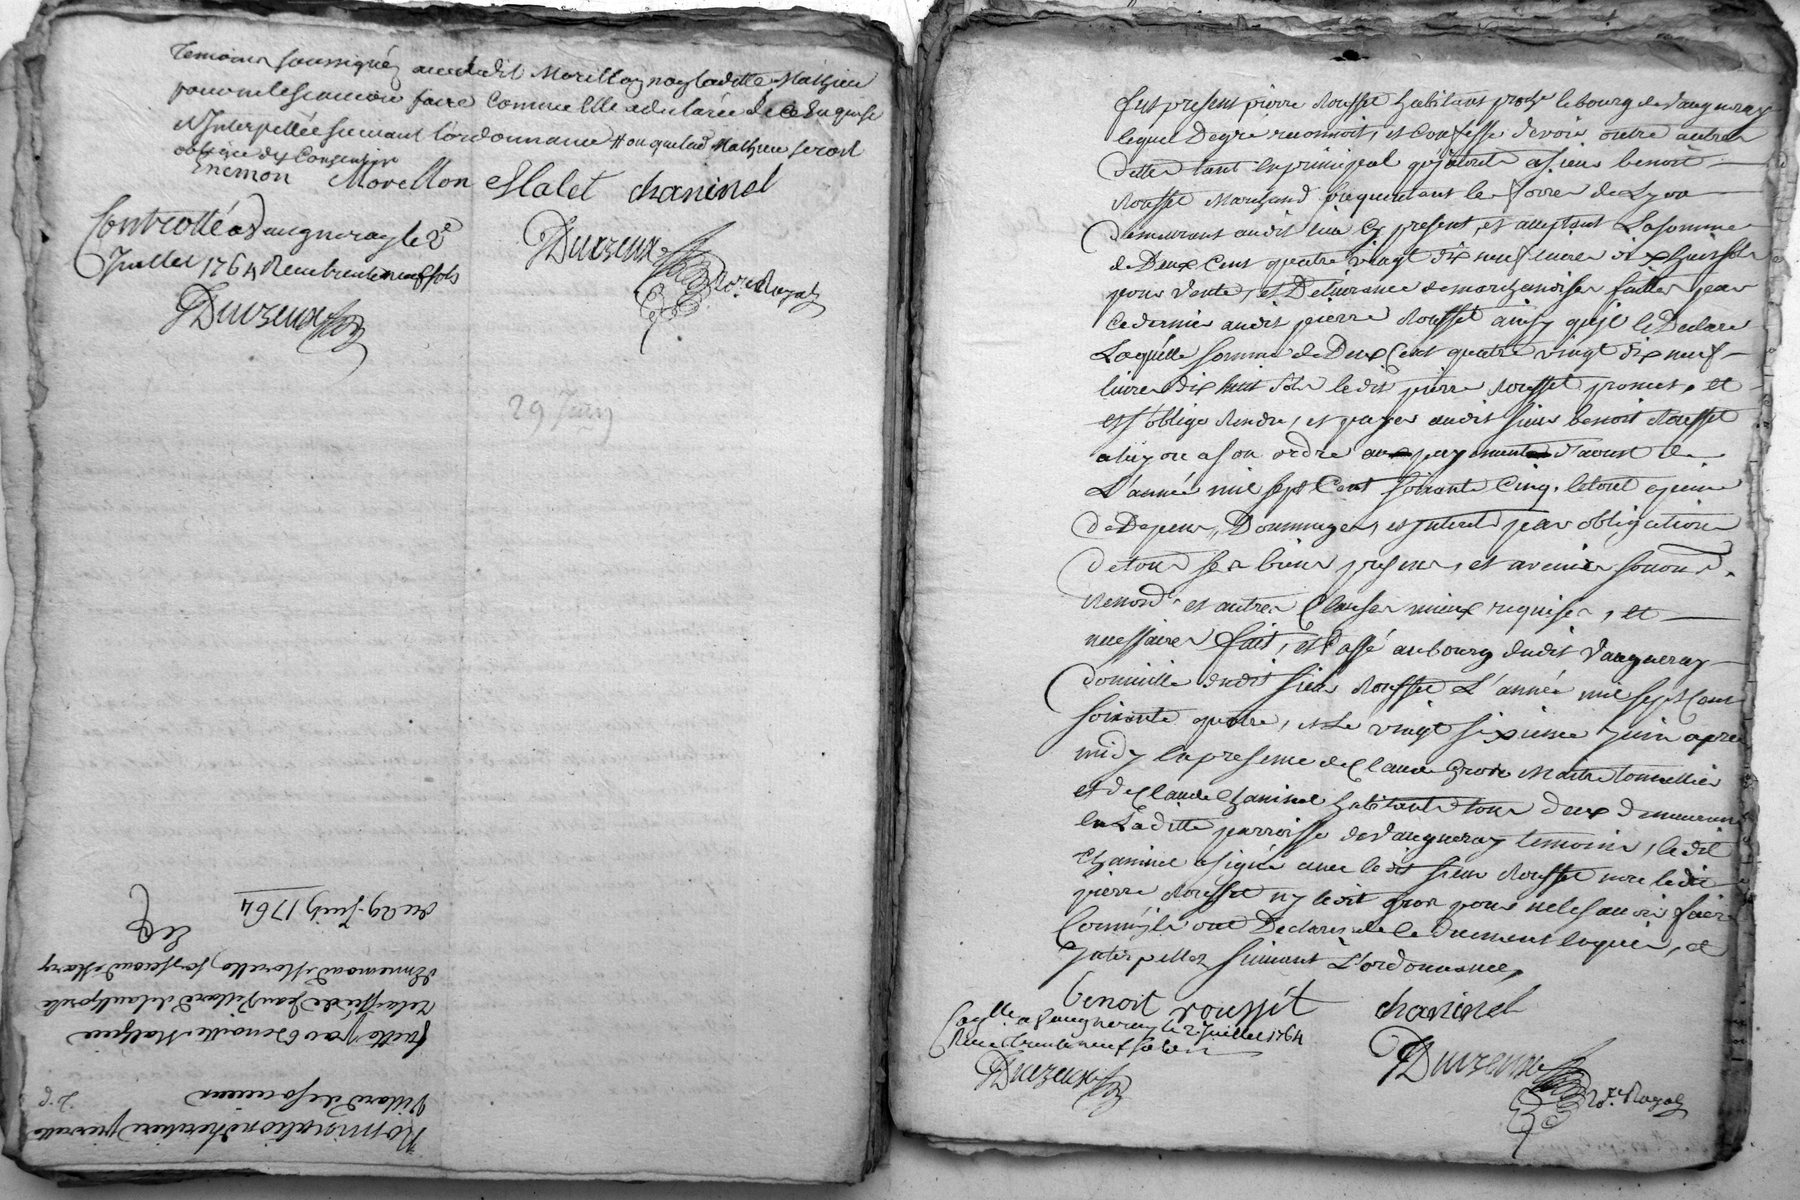 temoins soussignéz avec ledit Morellon non laditte Mathieu
pour ne le scavoir faire comme elle a declarée de ce Enquise
et Interpellée suivant l'ordonnance # ou que lad. Mathieu seroit
Enemon Morellon Halet chaninel
Controllé a Vaugneray le 2e
Juillet 1764 Reçu trente neuf sols
Duvzeux
Duvzeux
No.re Royal
29 Juin
Nomination d'heritiere
Villard de son mary
faitte par Benoitte Mathieu
relaissée de Jean Villard
Ennemond Morellon, son second Mary
du 29. Juin 1764
fust present pierre Rousset habitant proche le bourg de Vaugneray
lequel De gré reconnoit, et Confesse devoir outre autres
dette tant en principal qu'interets a sieur benoit
Rousset Marchand frequentant les foires de Lyon
demeurant audit lieu Cy present, et acceptant La somme
de Deux Cent quatre vingt dix neuf livres dix huit sols
pour Vente, et Delivrance de marchandises faittes par
ce dernier audit pierre Rousset ainsy qu'il le Declare
Laquelle somme de Deux Cent quatre vingt dix neuf
livres dix huit sols ledit pierre Rousset promet, et
s'oblige Rendre, et payer audit sieur benoit Rousset
a luy ou a son ordre au payement d'aoust de
L'année mil sept Cent soixante Cinq, le tout a peine
de Depens, Dommages, et Interets par obligation
de tous ses biens presens, et avenir soumis.
Renond. et autres Clauses mieux requises, et
necessaires fait, et Passé au bourg dudit Vaugneray
Domicille dudit sieur Rousset L'année mil sept Cent
soixante quatre, et Le vingt sixieme Juin apres
midy en presence de Claude Gros Maitre tonnellier
et de Claude Chaninel habitants tous deux demeurant
en Laditte parroisse de Vaugneray temoins, ledit
Chaninel a signé avec ledit sieur Rousset non ledit
pierre Rousset ny ledit gros pour ne le scavoir faire
Comm'ils ont Declarés de Ce Duement Enquis, et
Interpellez suivant L'ordonnance,
benoit roussét chaninel
Con.llé a Vaugneray le 2 Juillet 1764
Reçu trente neuf sols
Duvzeux
Duvzeux
No.re Royal